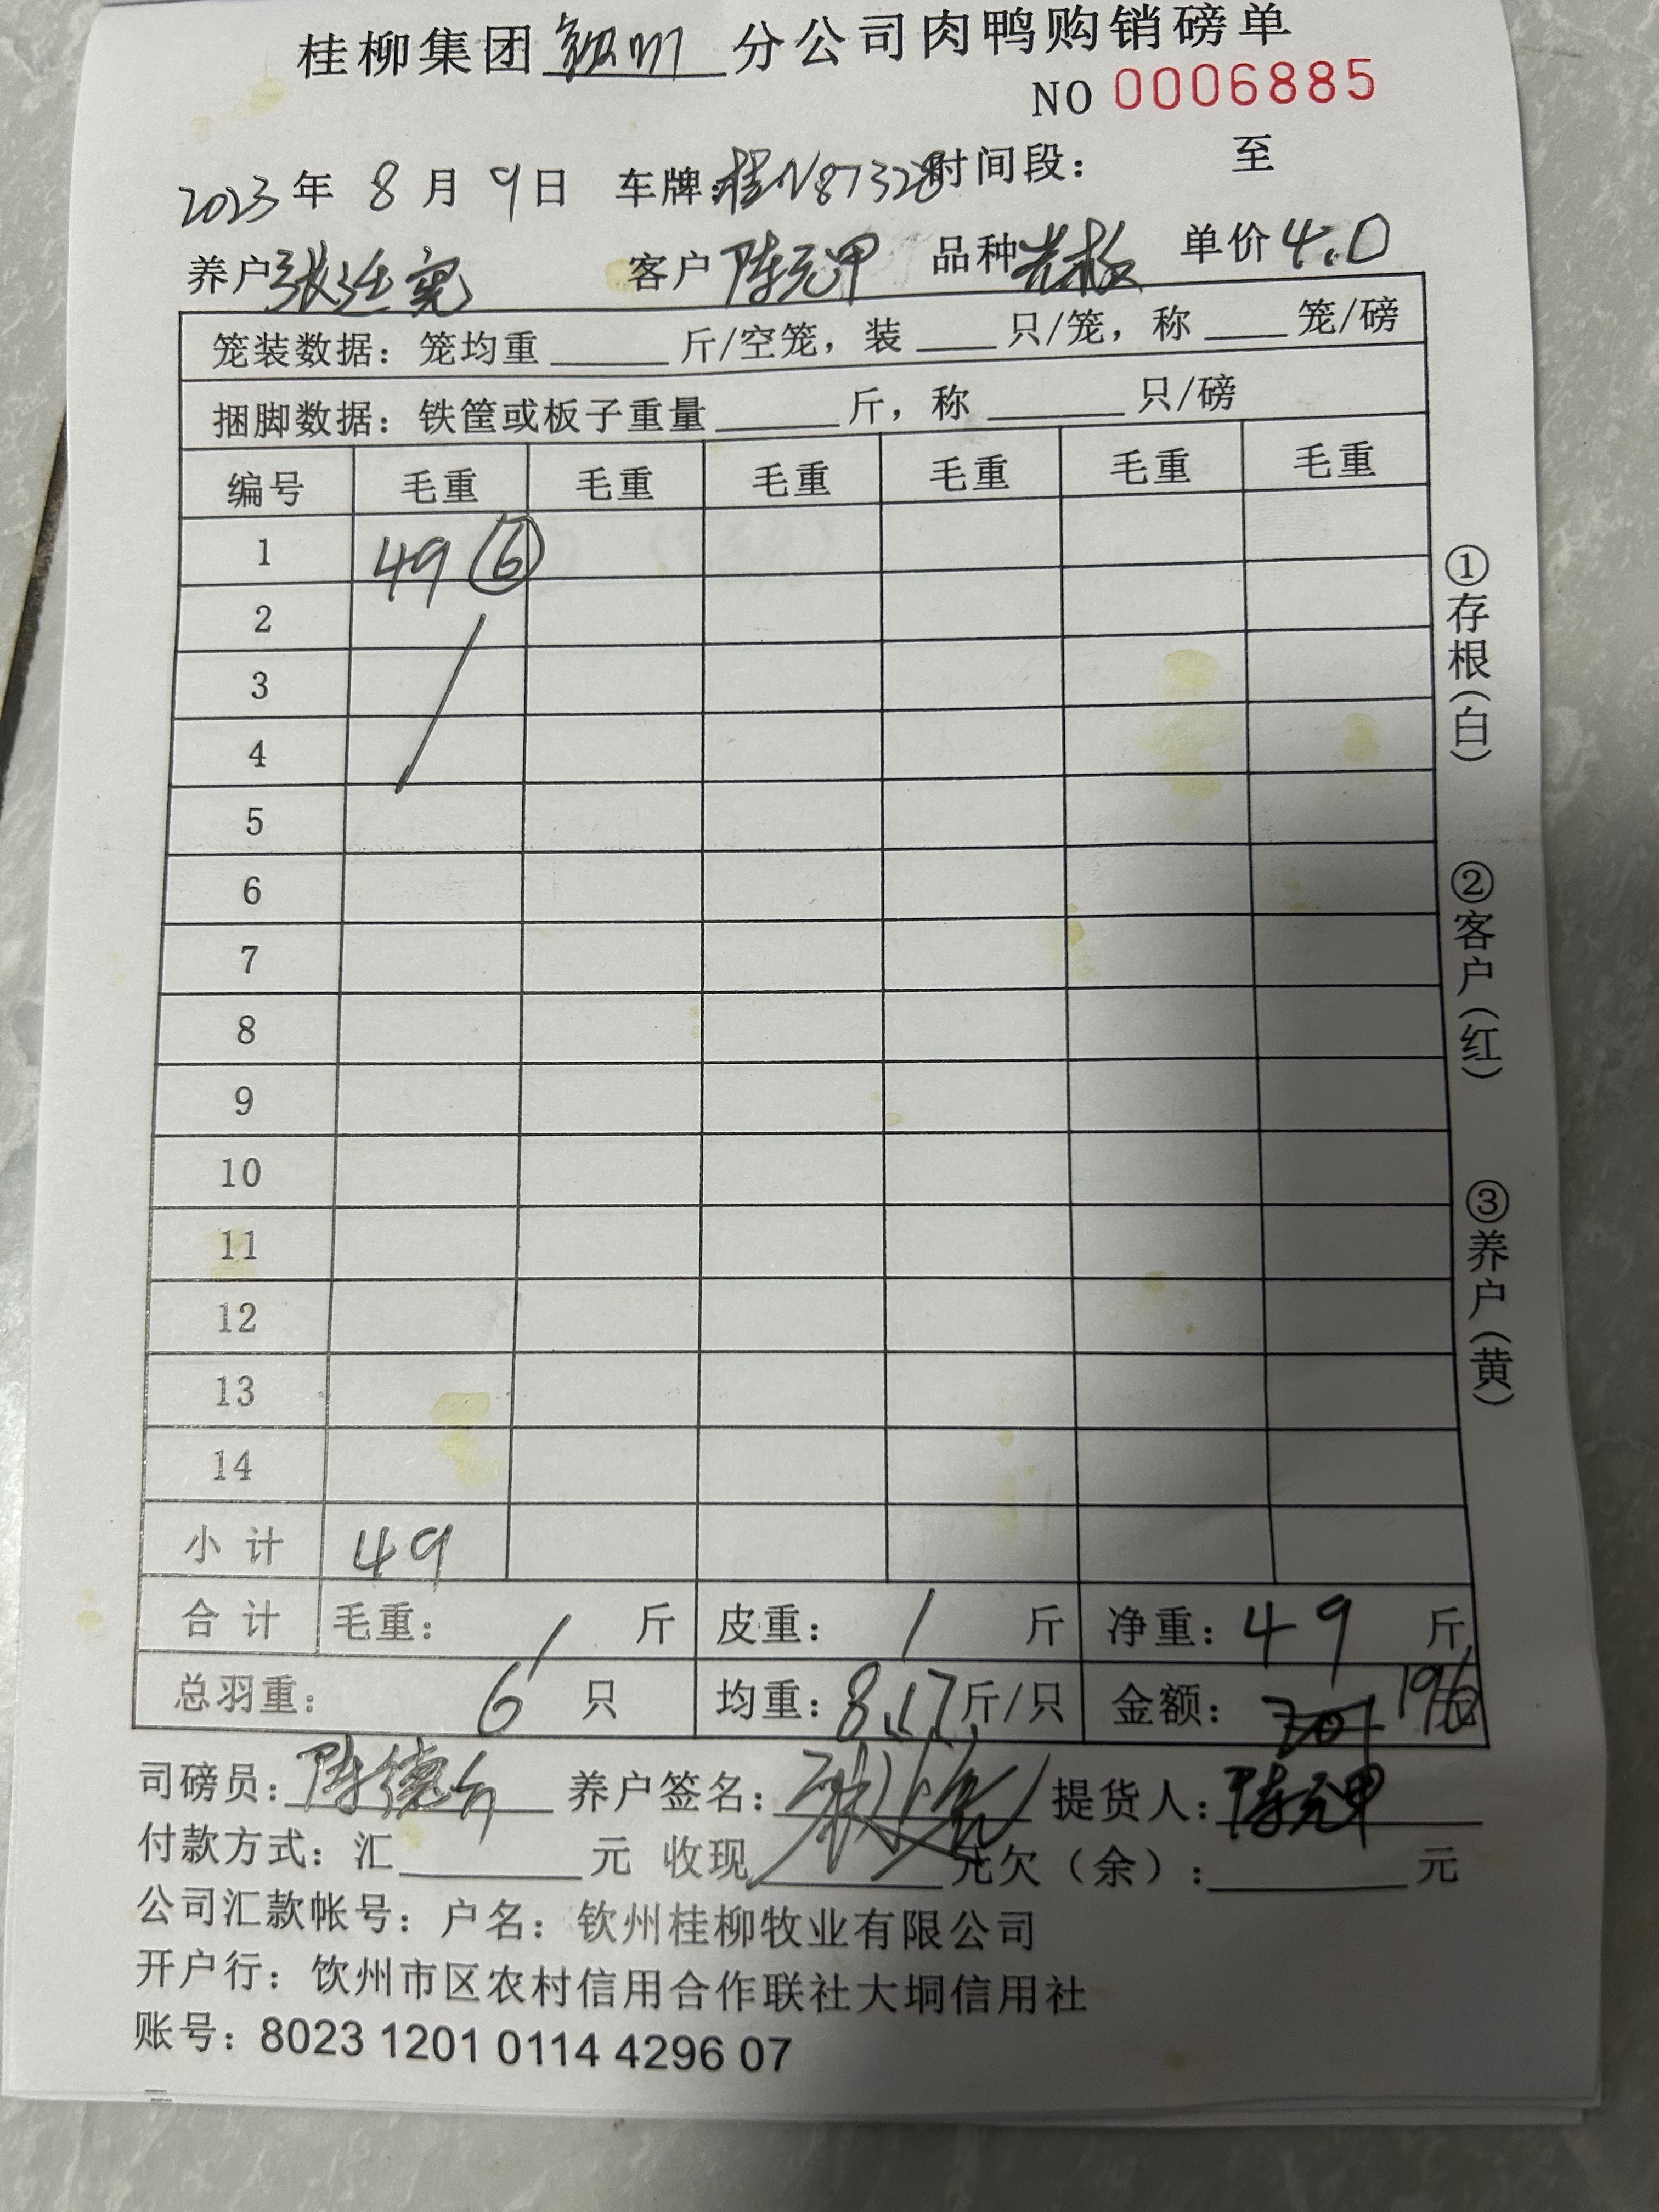 桂柳集团钦州分公司肉鸭购销磅单
NO 0006885
2023年 8月 9日 车牌:桂N87328时间段: 至
养户张廷宽 客户陈元甲 品种 单价4.0
笼装数据: 笼均重 斤/空笼, 装 只/笼, 称 笼/磅
捆脚数据: 铁筐或板子重量 斤, 称 只/磅
编号 毛重 毛重 毛重 毛重 毛重 毛重
1 49 ⑥
2
3
4
5
6
7
8
9
10
11
12
13
14
小计 49
合计 毛重: / 斤 皮重: / 斤 净重: 49 斤
总羽重: 6 只 均重: 8.17斤/只 金额: 196
司磅员: 陈德 养户签名: 提货人: 陈元甲
付款方式: 汇 元 收现 元欠(余): 元
公司汇款帐号: 户名: 钦州桂柳牧业有限公司
开户行: 饮州市区农村信用合作联社大垌信用社
账号: 8023 1201 0114 4296 07
①存根(白)
②客户(红)
③养户(黄)